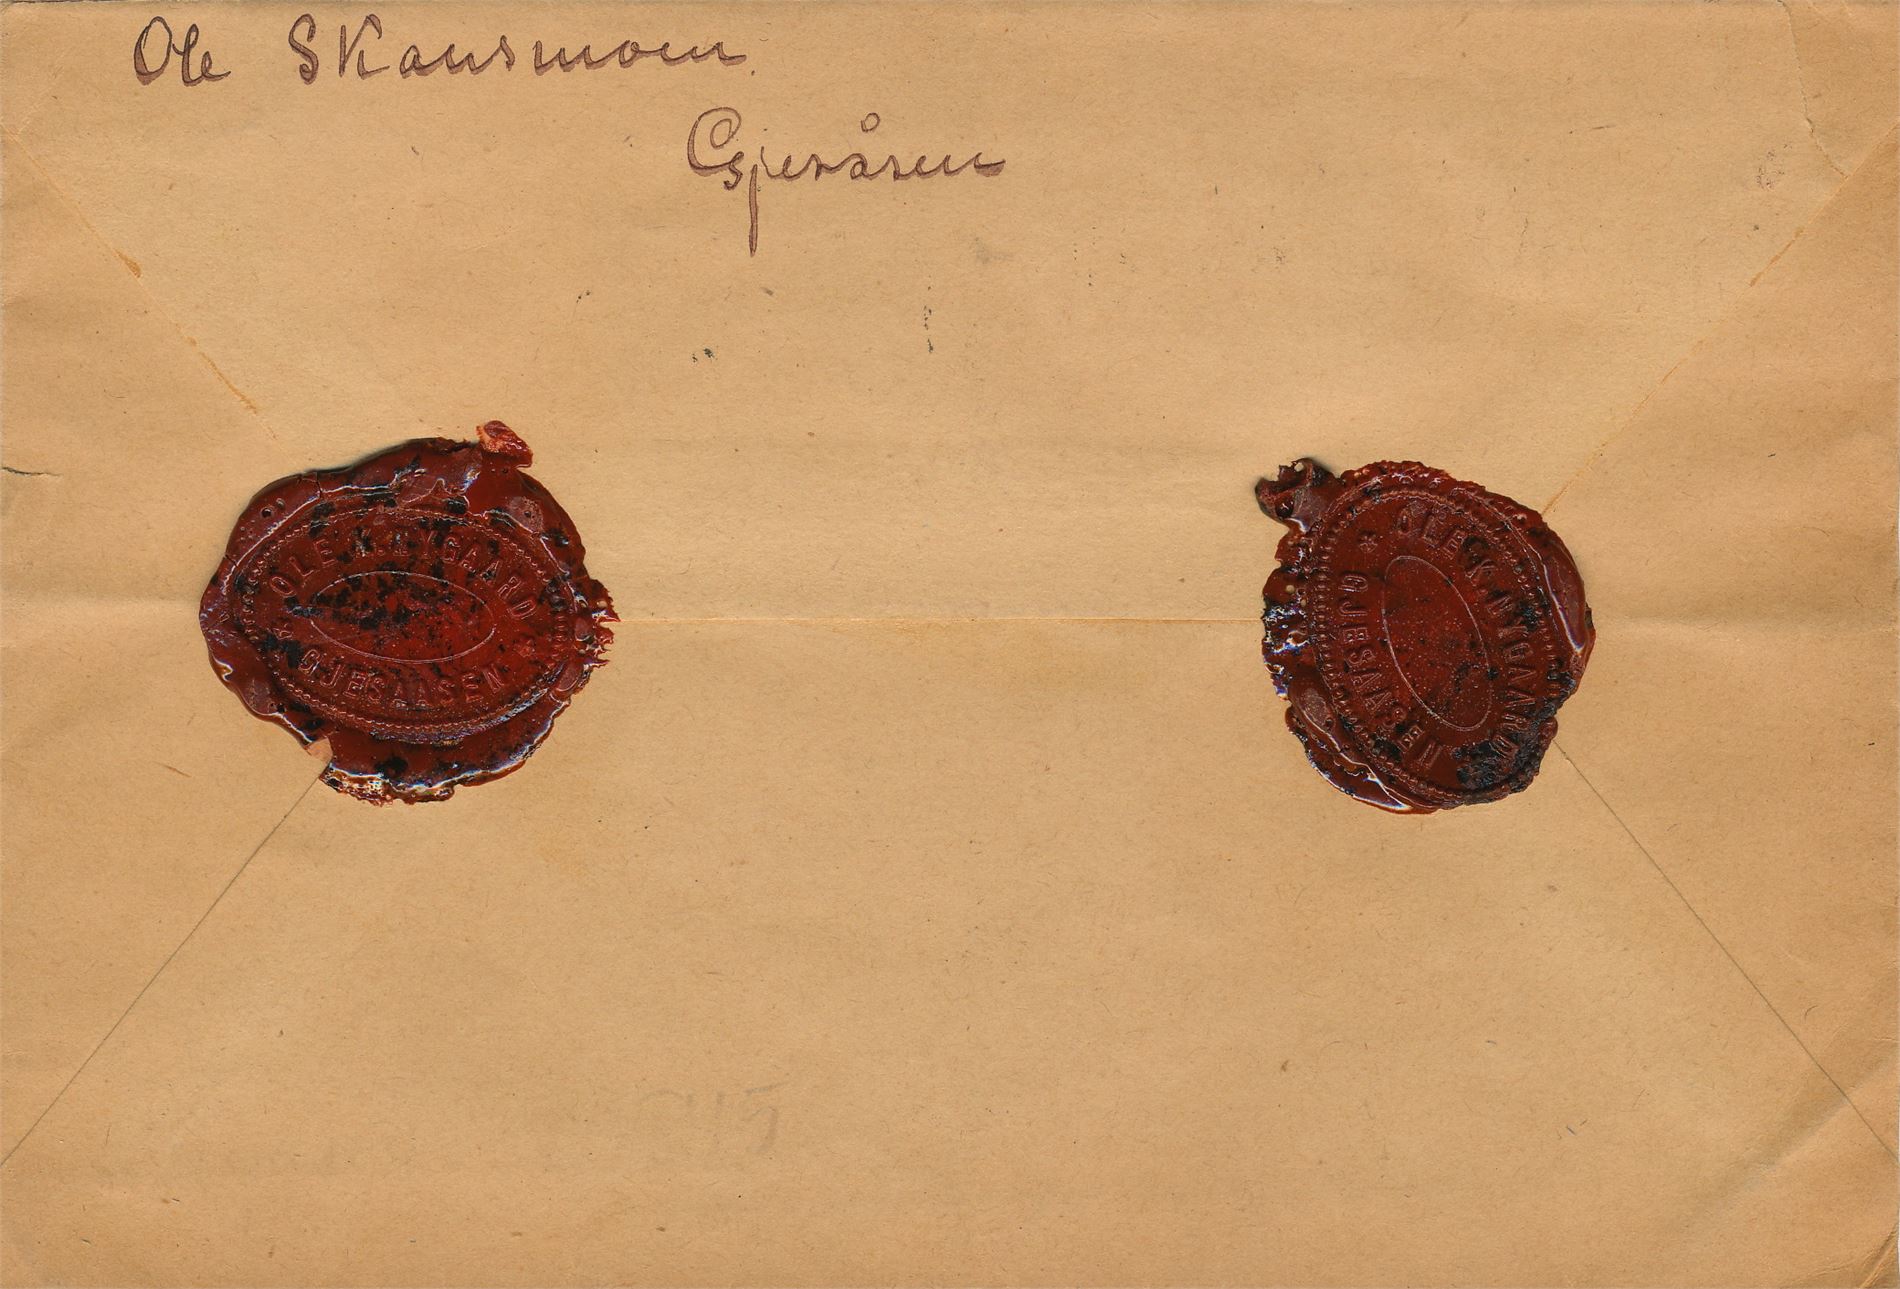 Ole Skansmoen
Gjesåsen
OLE K. NYGAARD
* GJESAASEN *
* OLE K. NYGAARD
GJESAASEN